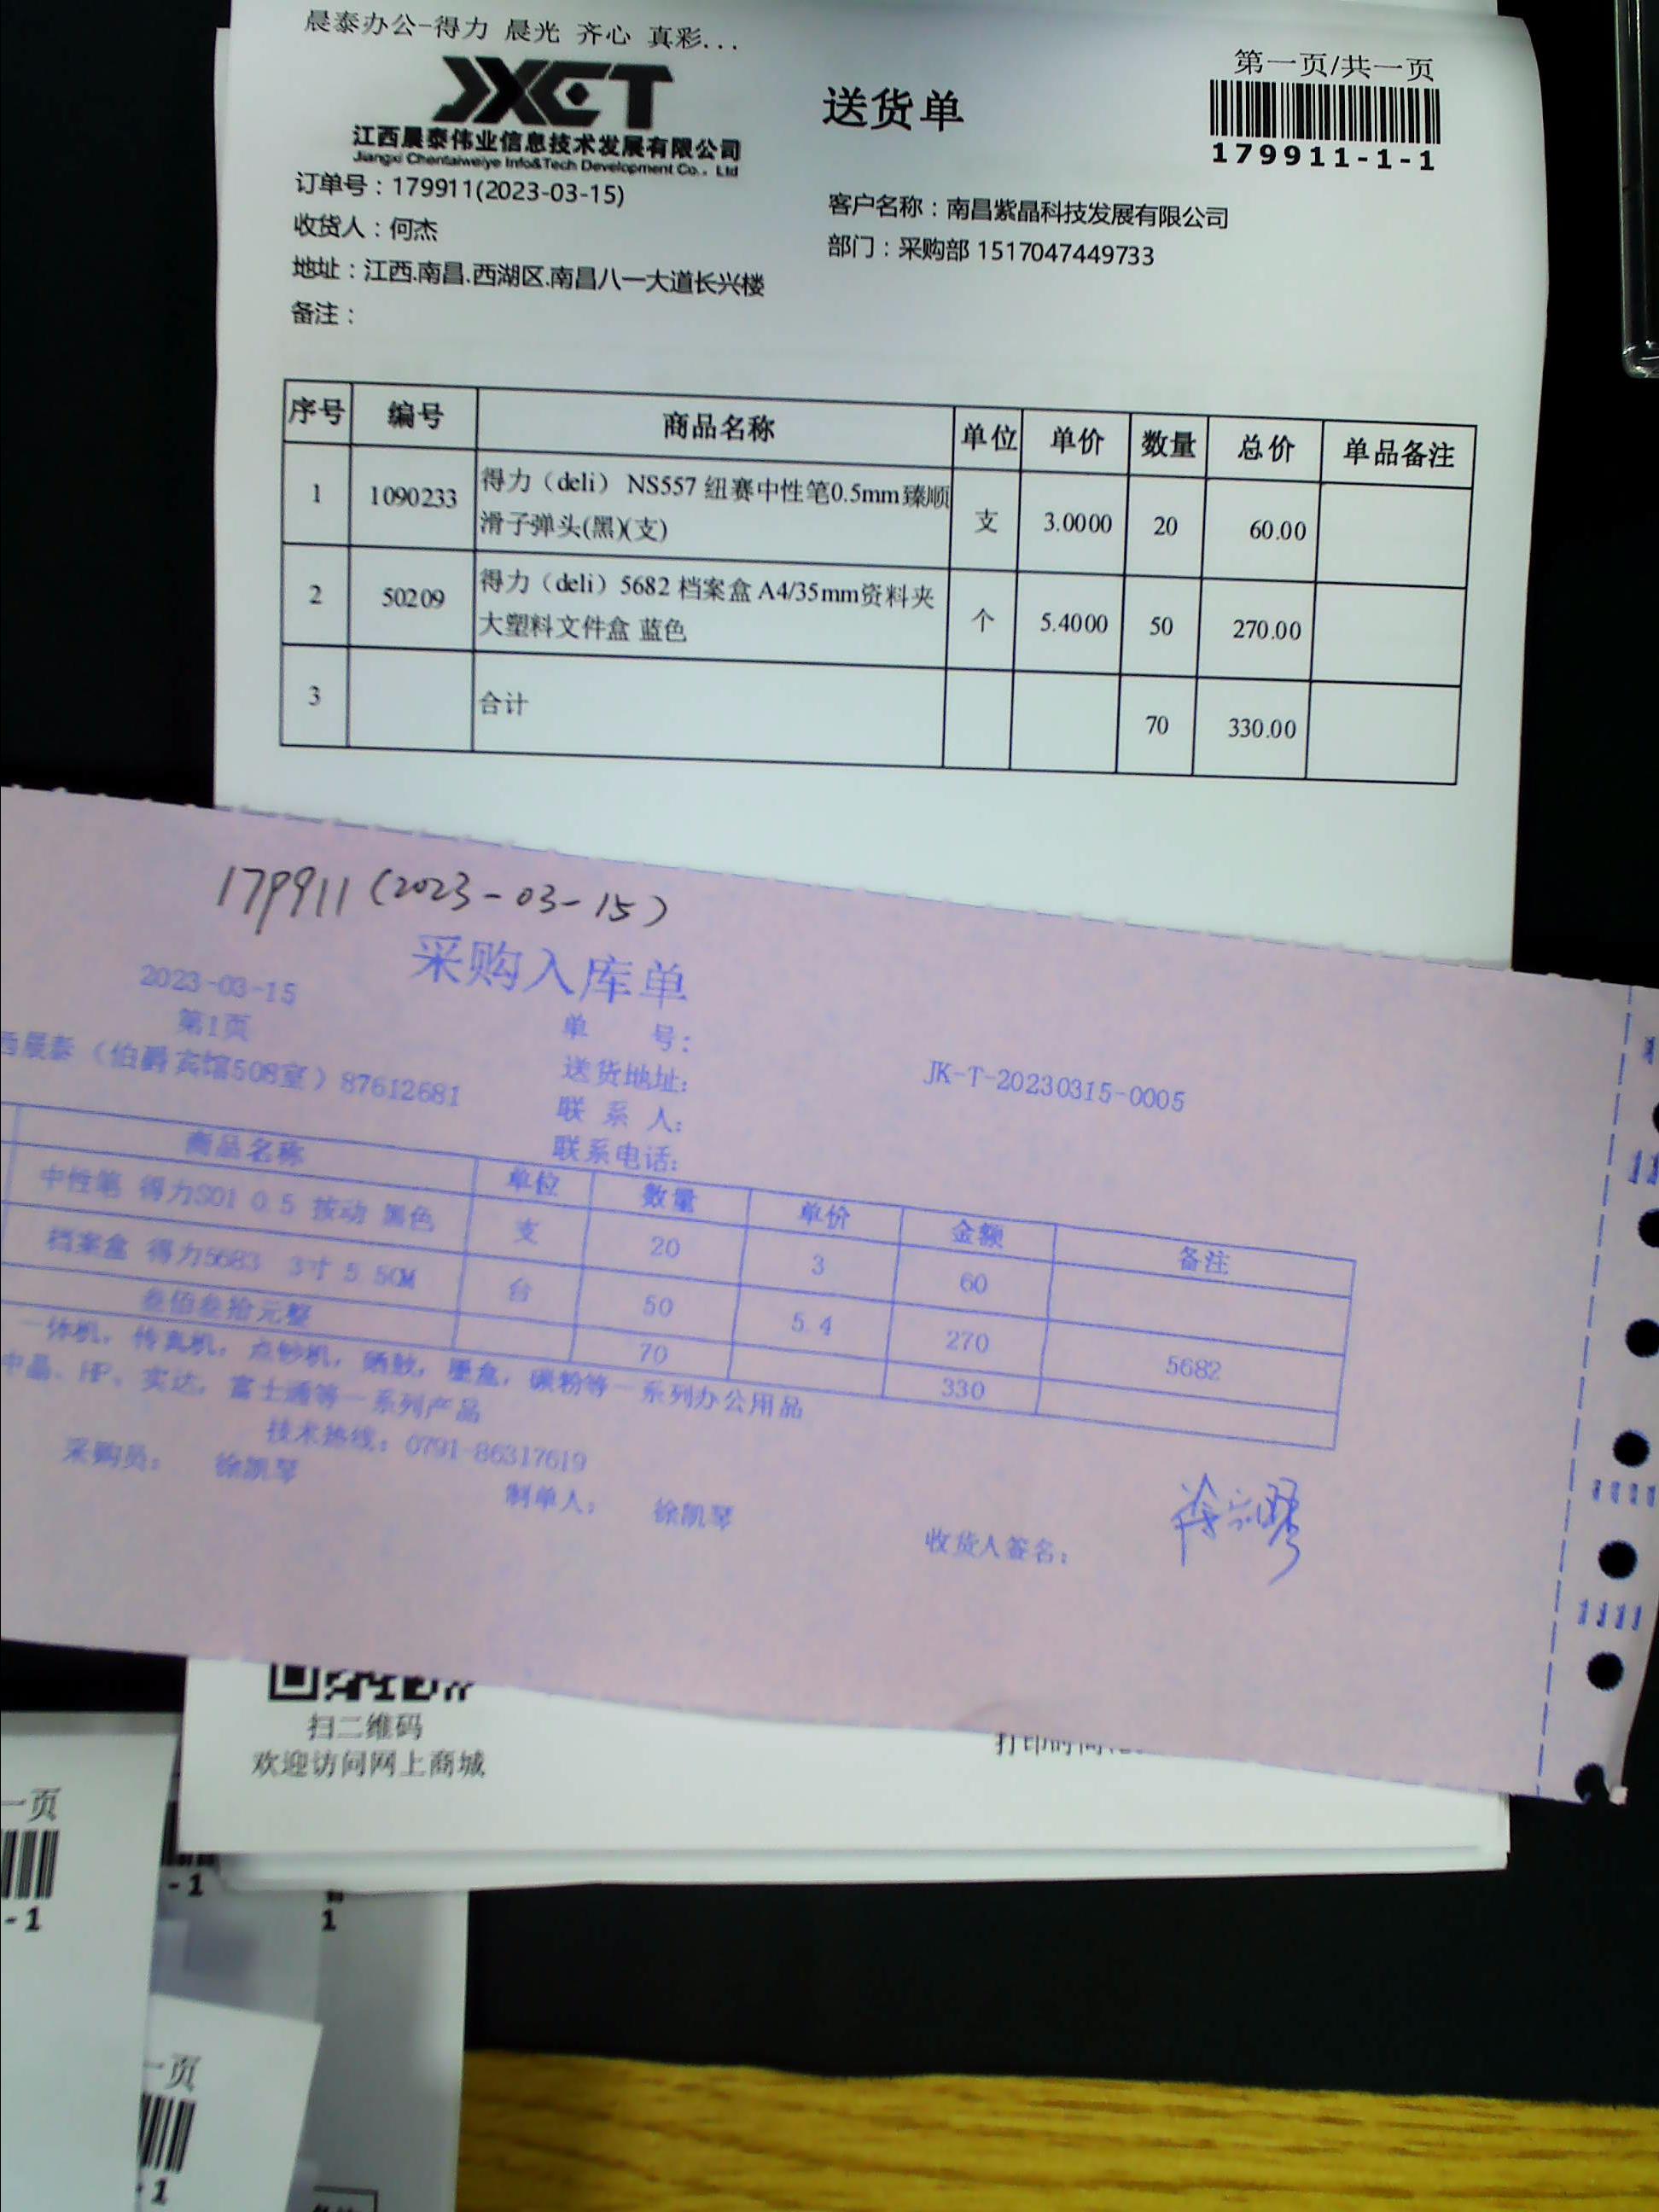 晨泰办公-得力 晨光 齐心 真彩...
第一页/共一页
JXCT
送货单
江西晨泰伟业信息技术发展有限公司
Jiangxi Chentaiweiye Info&Tech Development Co., Ltd
179911-1-1
订单号：179911(2023-03-15)
客户名称：南昌紫晶科技发展有限公司
收货人：何杰
部门：采购部 1517047449733
地址：江西.南昌.西湖区.南昌八一大道长兴楼
备注：
序号 编号 商品名称 单位 单价 数量 总价 单品备注
1 1090233 得力（deli） NS557 纽赛中性笔0.5mm臻顺 支 3.0000 20 60.00
滑子弹头(黑)(支)
2 50209 得力（deli）5682 档案盒 A4/35mm资料夹 个 5.4000 50 270.00
大塑料文件盒 蓝色
3 合计 70 330.00
179911(2023-03-15)
采购入库单
2023-03-15
第1页
单 号： JK-T-20230315-0005
西晨泰（伯爵宾馆508室）87612681
送货地址：
联 系 人：
联系电话：
商品名称 单位 数量 单价 金额 备注
中性笔 得力S01 0.5 按动 黑色 支 20 3 60
档案盒 得力5683 3寸 5.5CM 台 50 5.4 270 5682
叁佰叁拾元整 70 330
一体机，传真机，点钞机，硒鼓，墨盒，碳粉等一系列办公用品
中晶、HP、实达，富士通等一系列产品
技术热线：0791-86317619
采购员： 徐凯琴 制单人： 徐凯琴 收货人签名： 徐凯琴
扫二维码
欢迎访问网上商城
打印时间
一页
-1
-1
1
一页
-1